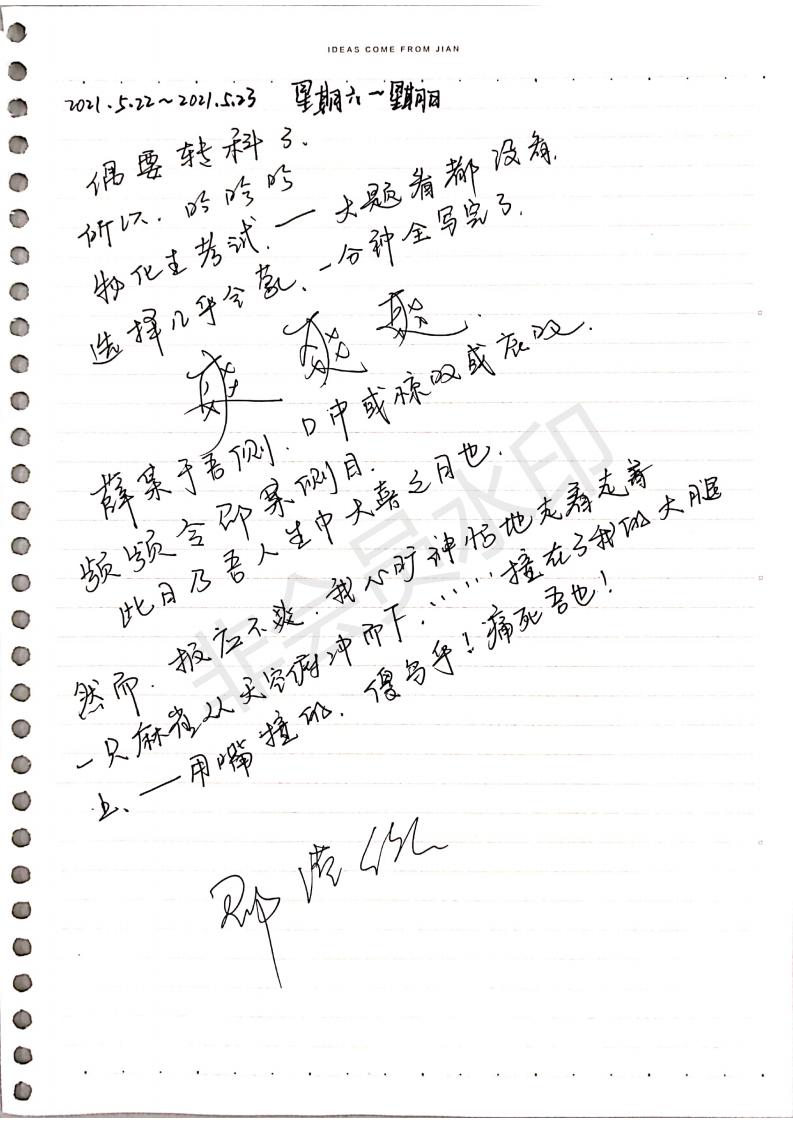 IDEAS COME FROM JIAN
2021.5.22~2021.5.23 星期六~星期日
偶要转科了.
所以.哈哈哈
物化生考试.——大题看都没看.
选择几乎全蒙、一分钟全写完了.
爽 爽 爽.
薛某于吾侧.口中或惊叹或哀叹.
频频令邱某侧目.
此日乃吾人生中大喜之日也.
然而.报应不爽.我心旷神怡地走着走着
一只麻雀从天空俯冲而下.……撞在了我的大腿
上、——用嘴撞的.傻鸟乎!痛死吾也!
非会员水印